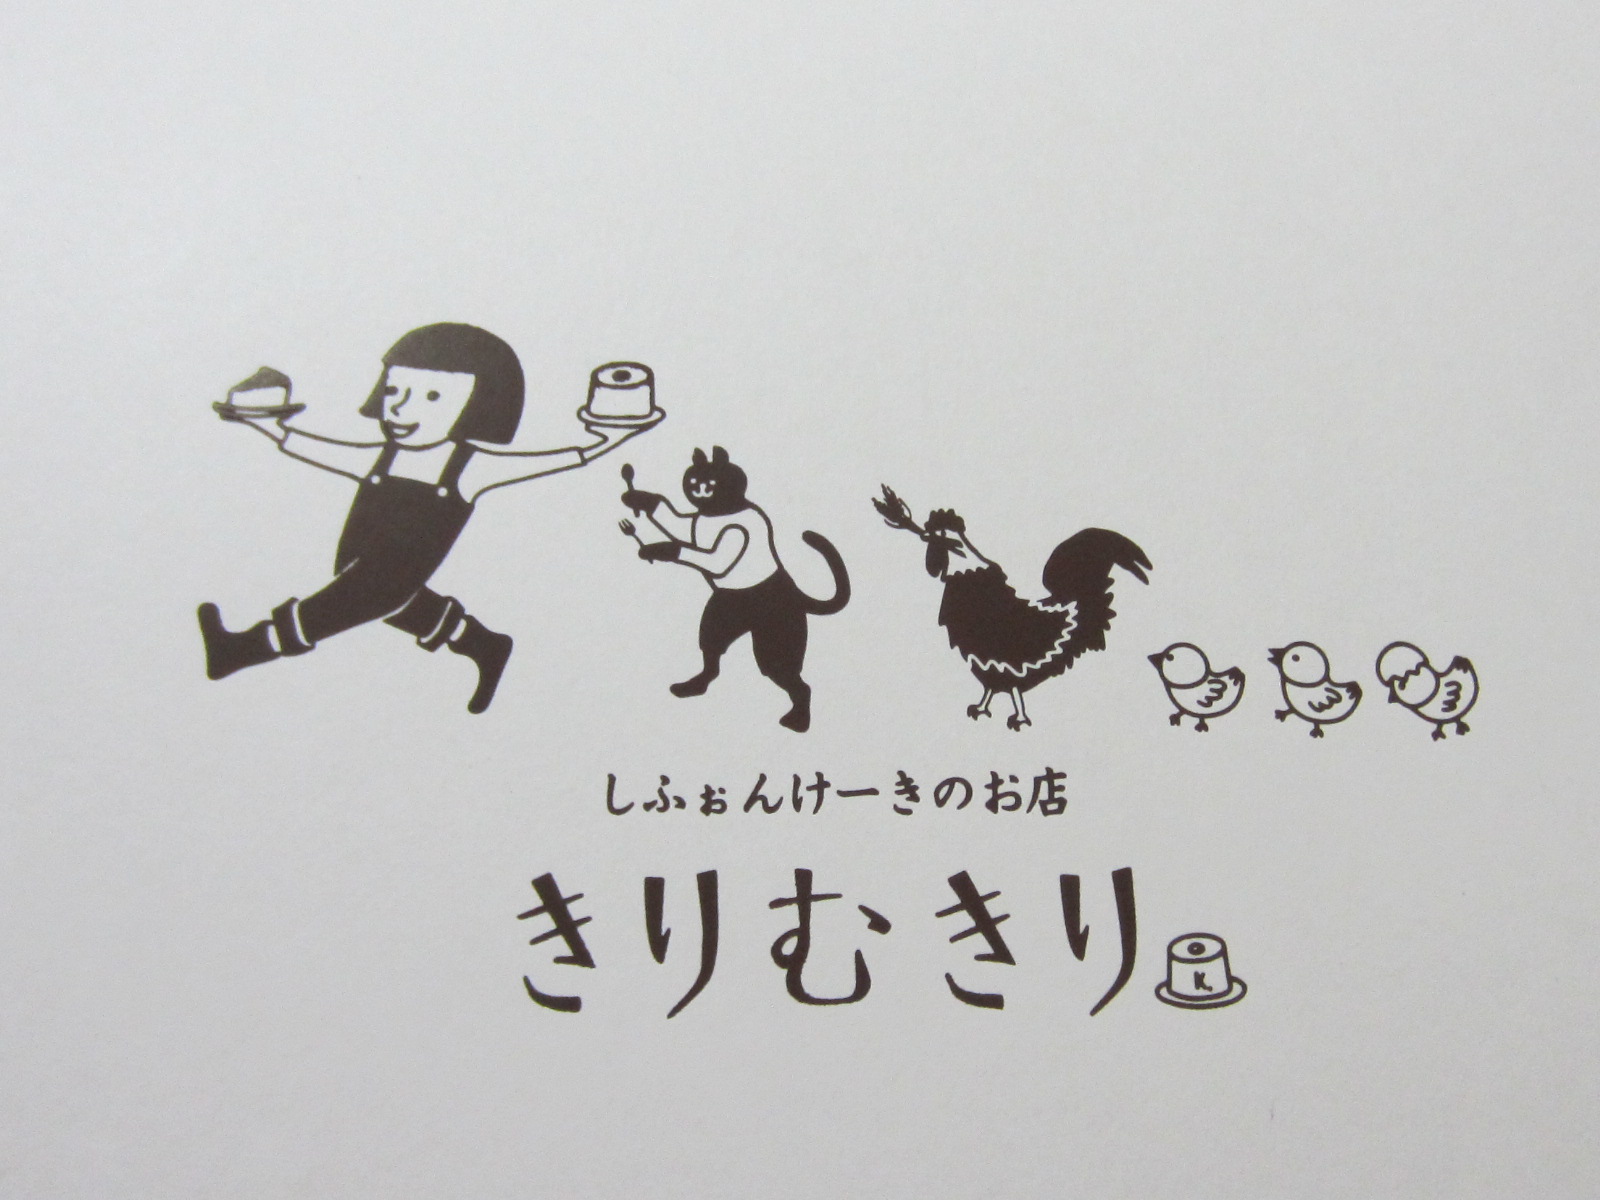 しふぉんけーきのお店
きりむきり
K.